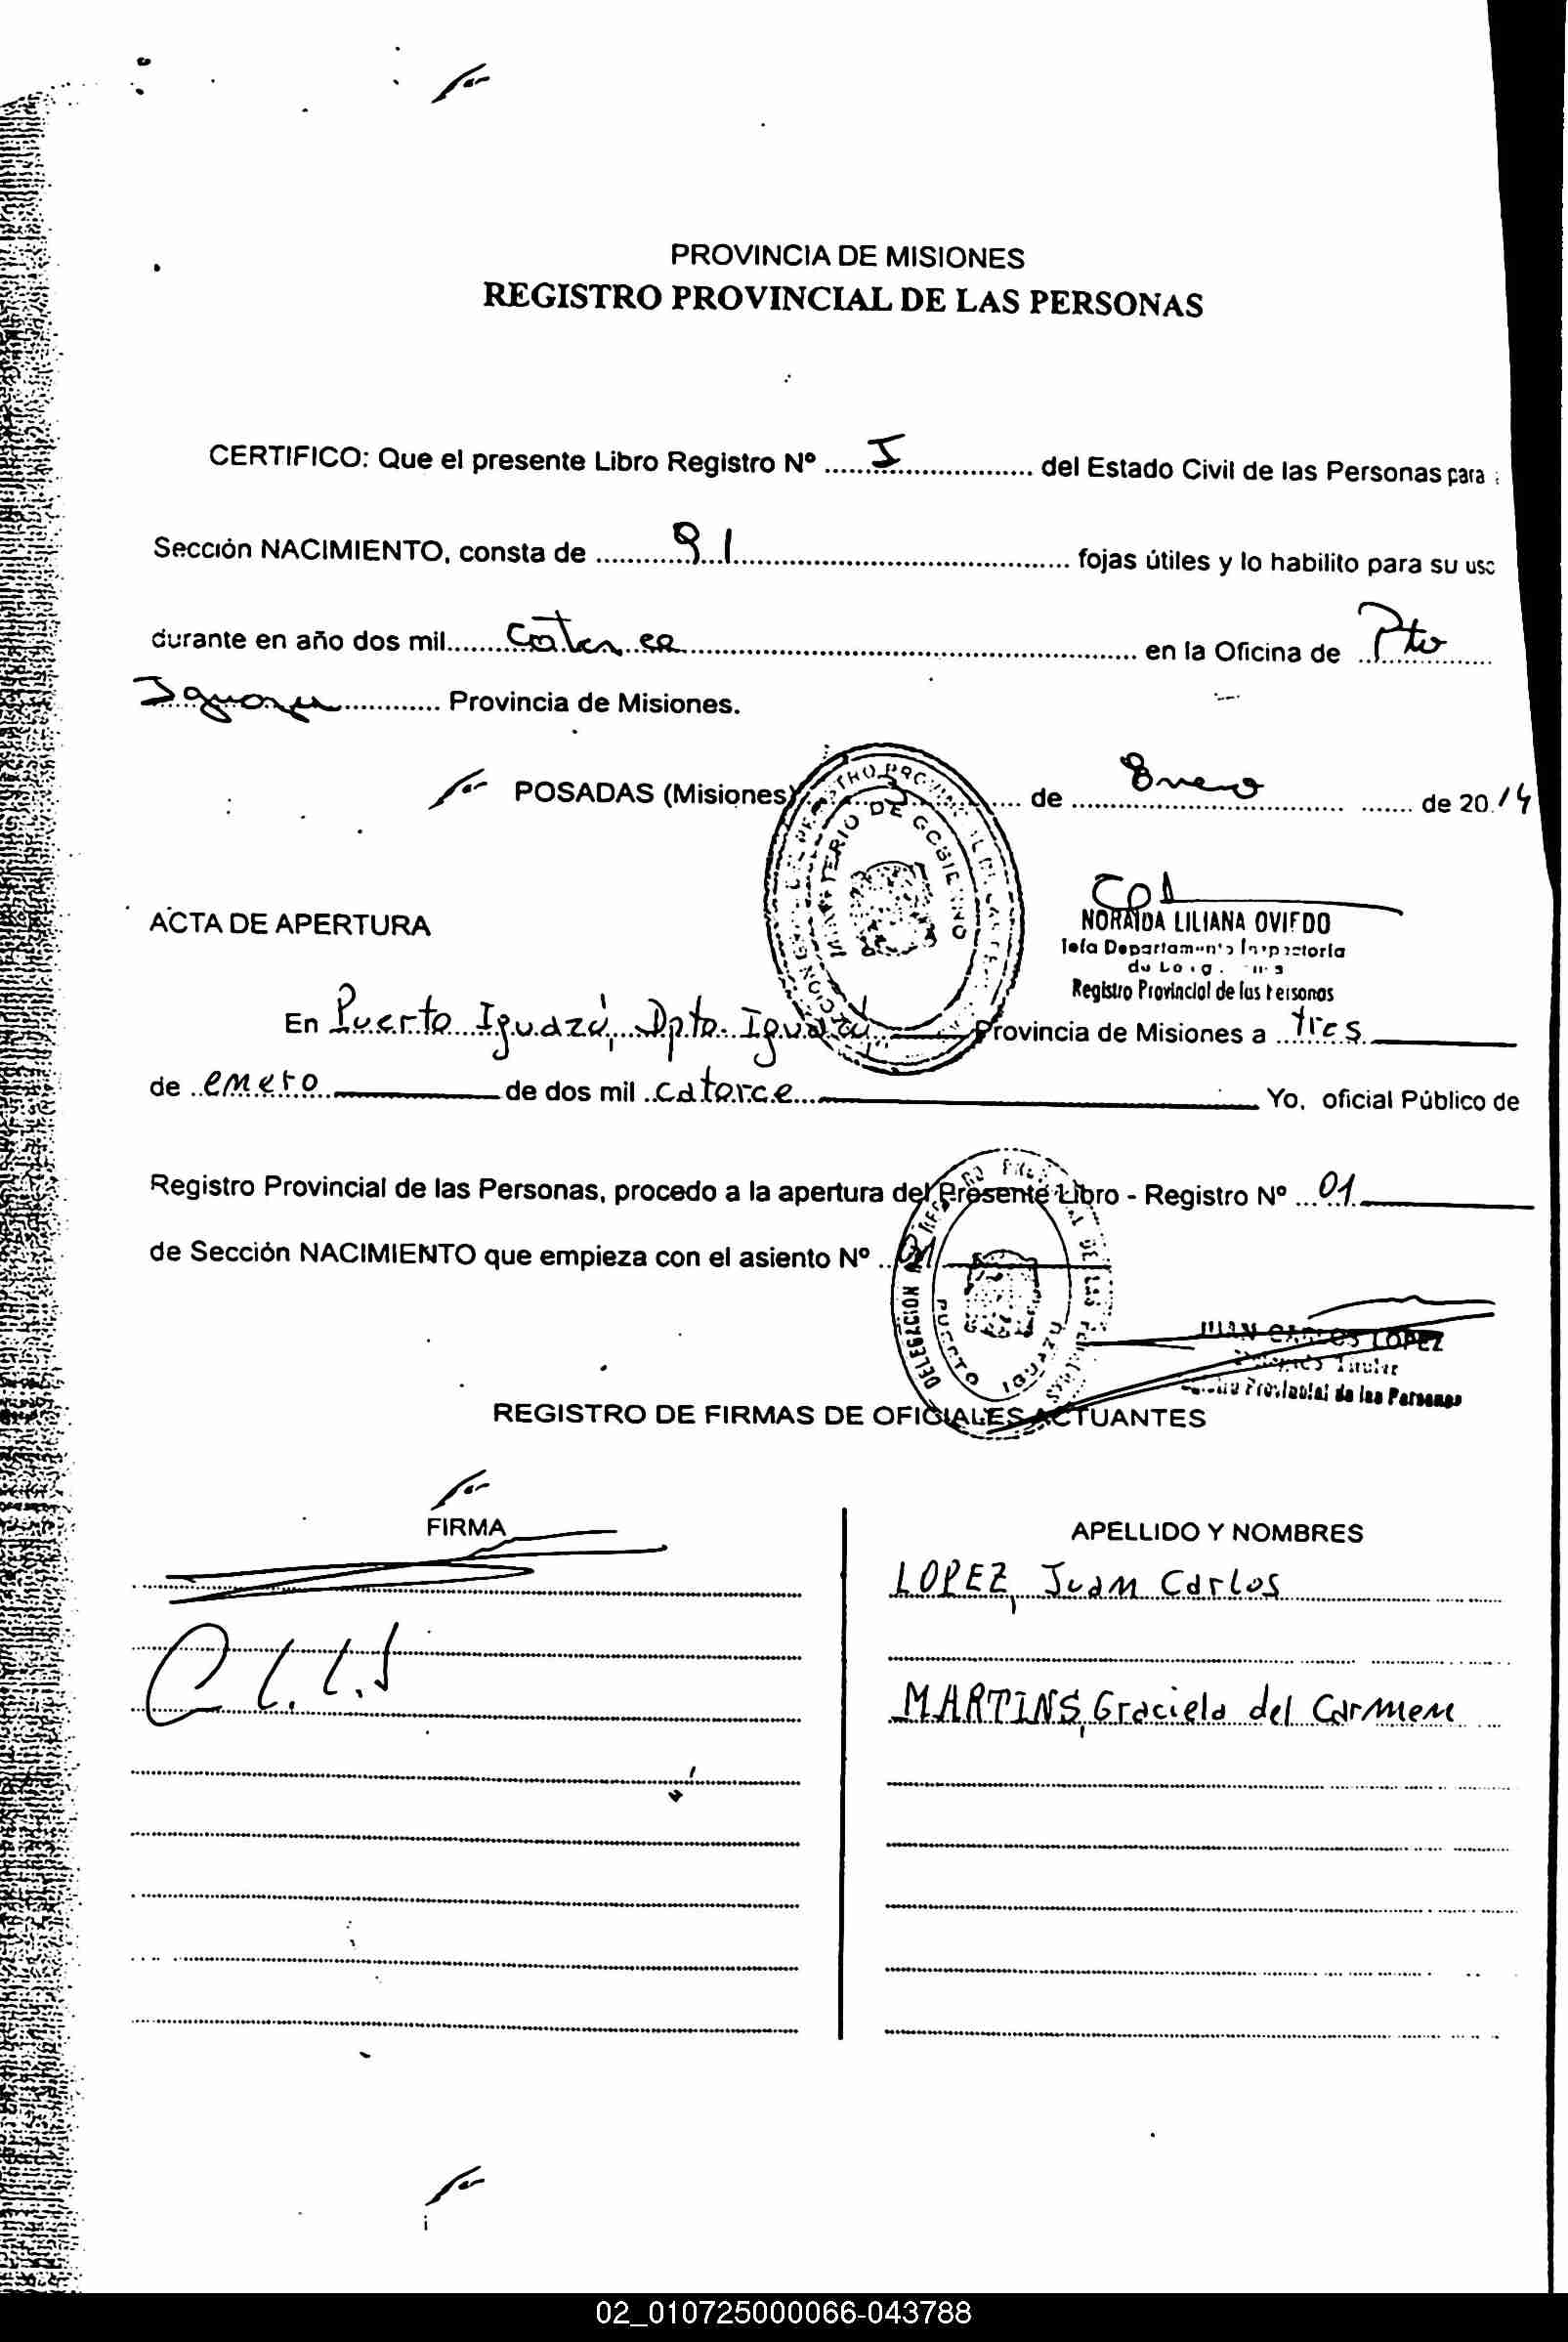 PROVINCIA DE MISIONES
REGISTRO PROVINCIAL DE LAS PERSONAS
CERTIFICO: Que el presente Libro Registro Nº I del Estado Civil de las Personas para
Sección NACIMIENTO, consta de 91 fojas útiles y lo habilito para su uso
durante en año dos mil catorce en la Oficina de Pto
Iguazu Provincia de Misiones.
POSADAS (Misiones) de Enero de 2014
ACTA DE APERTURA
NORAIDA LILIANA OVIEDO
Jefa Departamento Inspectoría
Registro Provincial de las Personas
En Puerto Iguazú, Dpto. Iguazú Provincia de Misiones a tres
de enero de dos mil catorce Yo, oficial Público de
Registro Provincial de las Personas, procedo a la apertura del Presente Libro - Registro Nº 01
de Sección NACIMIENTO que empieza con el asiento Nº 01
DELEGACION
PUERTO IGUAZU
JUAN CARLOS LOPEZ
Titular
Provincial de las Personas
REGISTRO DE FIRMAS DE OFICIALES ACTUANTES
FIRMA APELLIDO Y NOMBRES
LOPEZ, Juan Carlos
MARTINS, Graciela del Carmen
02_010725000066-043788